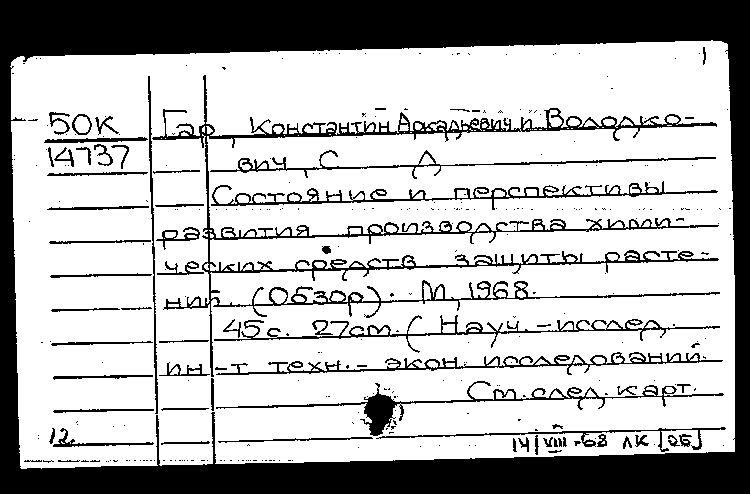 1
50К Гар, Константин Аркадьевич и Володко-
14737 вич, С Л
Состояние и перспективы
развития производства хими-
ческих средств защиты расте-
ний. (Обзор). М, 1968.
45с. 27см. (Науч.-исслед.
ин-т техн.-экон. исследований.
См. след. карт.
12. 14/VIII-68 ЛК [25]